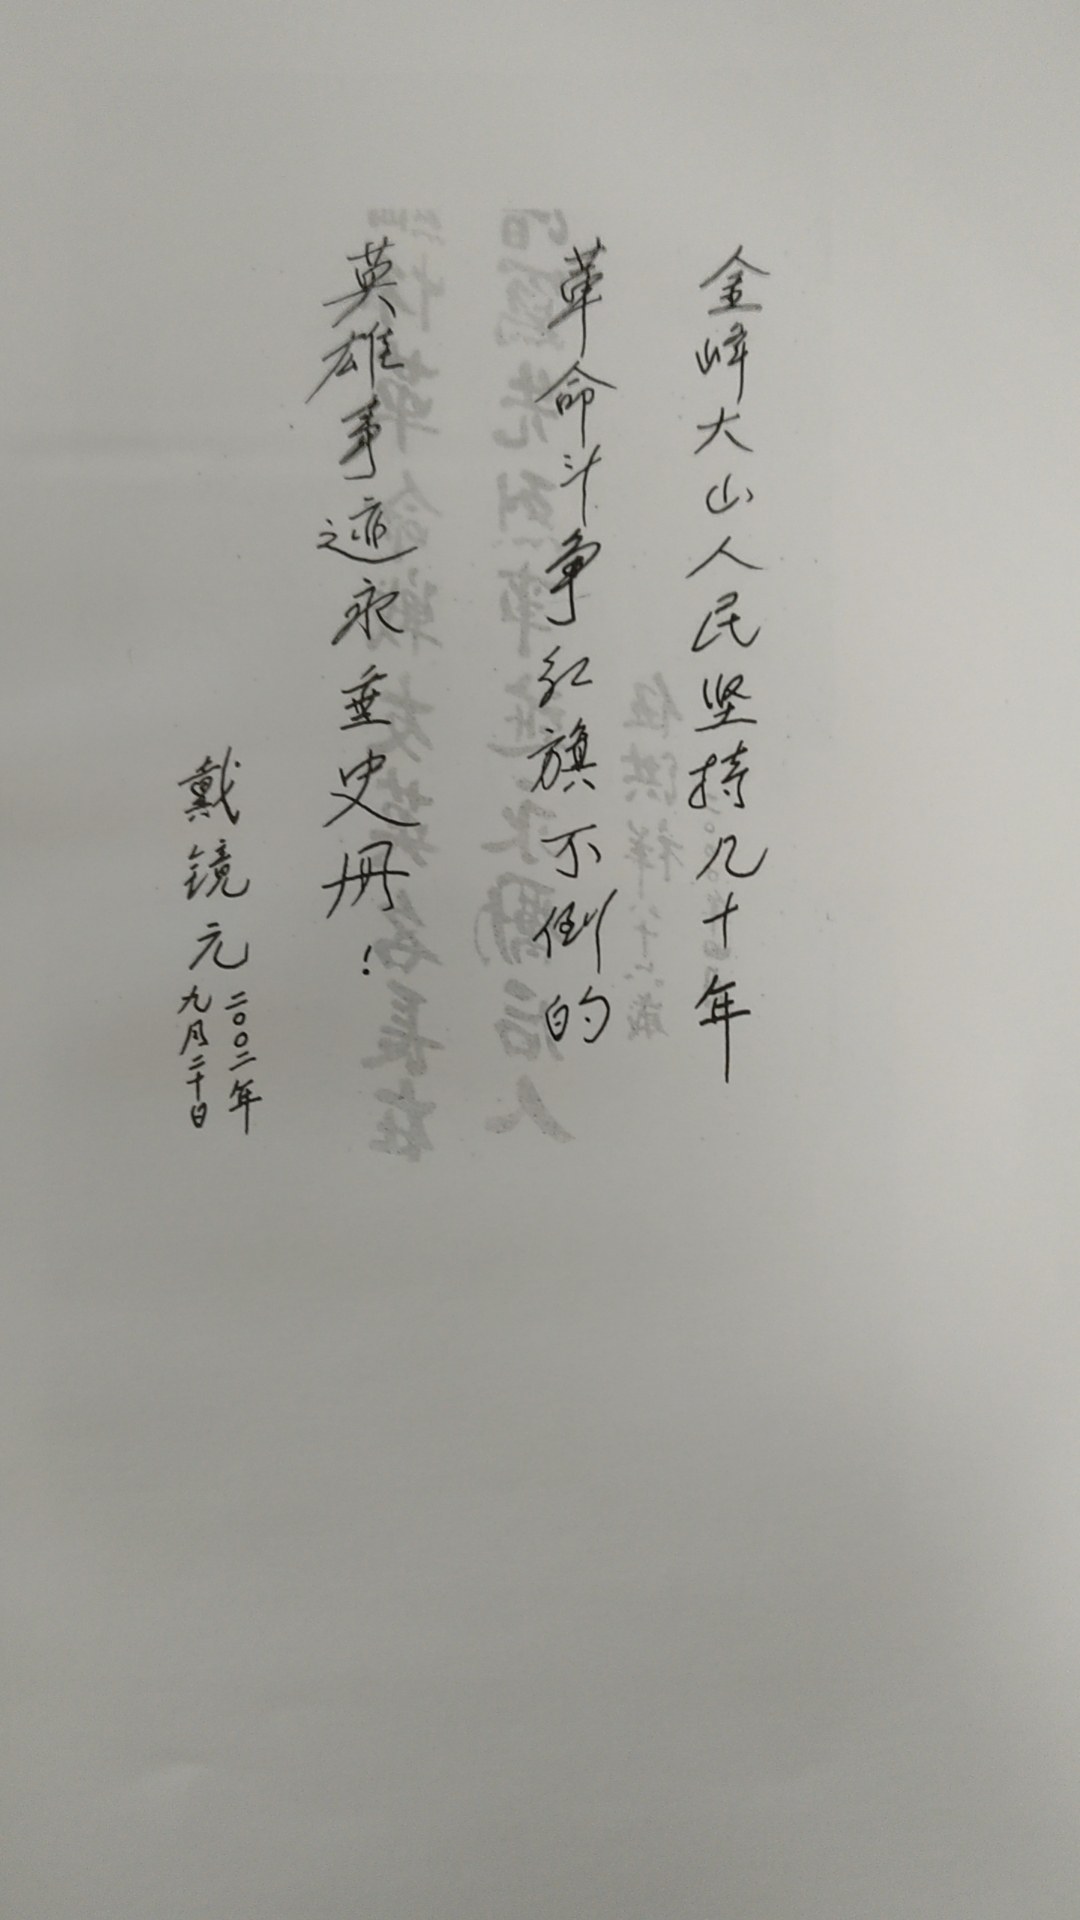 金峰大山人民坚持几十年
革命斗争红旗不倒的
英雄事迹永垂史册！
戴镜元
二〇〇二年
九月二十日